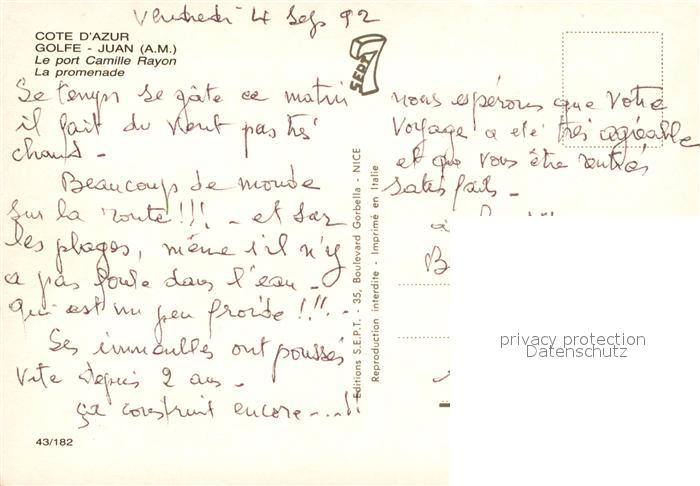 Vendredi 4 Sep 92
COTE D'AZUR
GOLFE - JUAN (A.M.)
Le port Camille Rayon
La promenade
Se temps se gâte ce matin
il fait du vent pas très
chaud -
Beaucoup de monde
sur la route!!! - et sur
les plages, même s'il n'y
a pas foule dans l'eau -
qui est un peu froide!!!. -
Ses immeubles ont poussés
vite depuis 2 ans -
ça construit encore....!!
43/182
SEPT
Editions S.E.P.T. - 35, Boulevard Gorbella - NICE
Reproduction interdite - Imprimé en Italie
nous espérons que votre
voyage a été très agréable
et que vous être rentrés
satisfaits -
à
B
privacy protection
Datenschutz